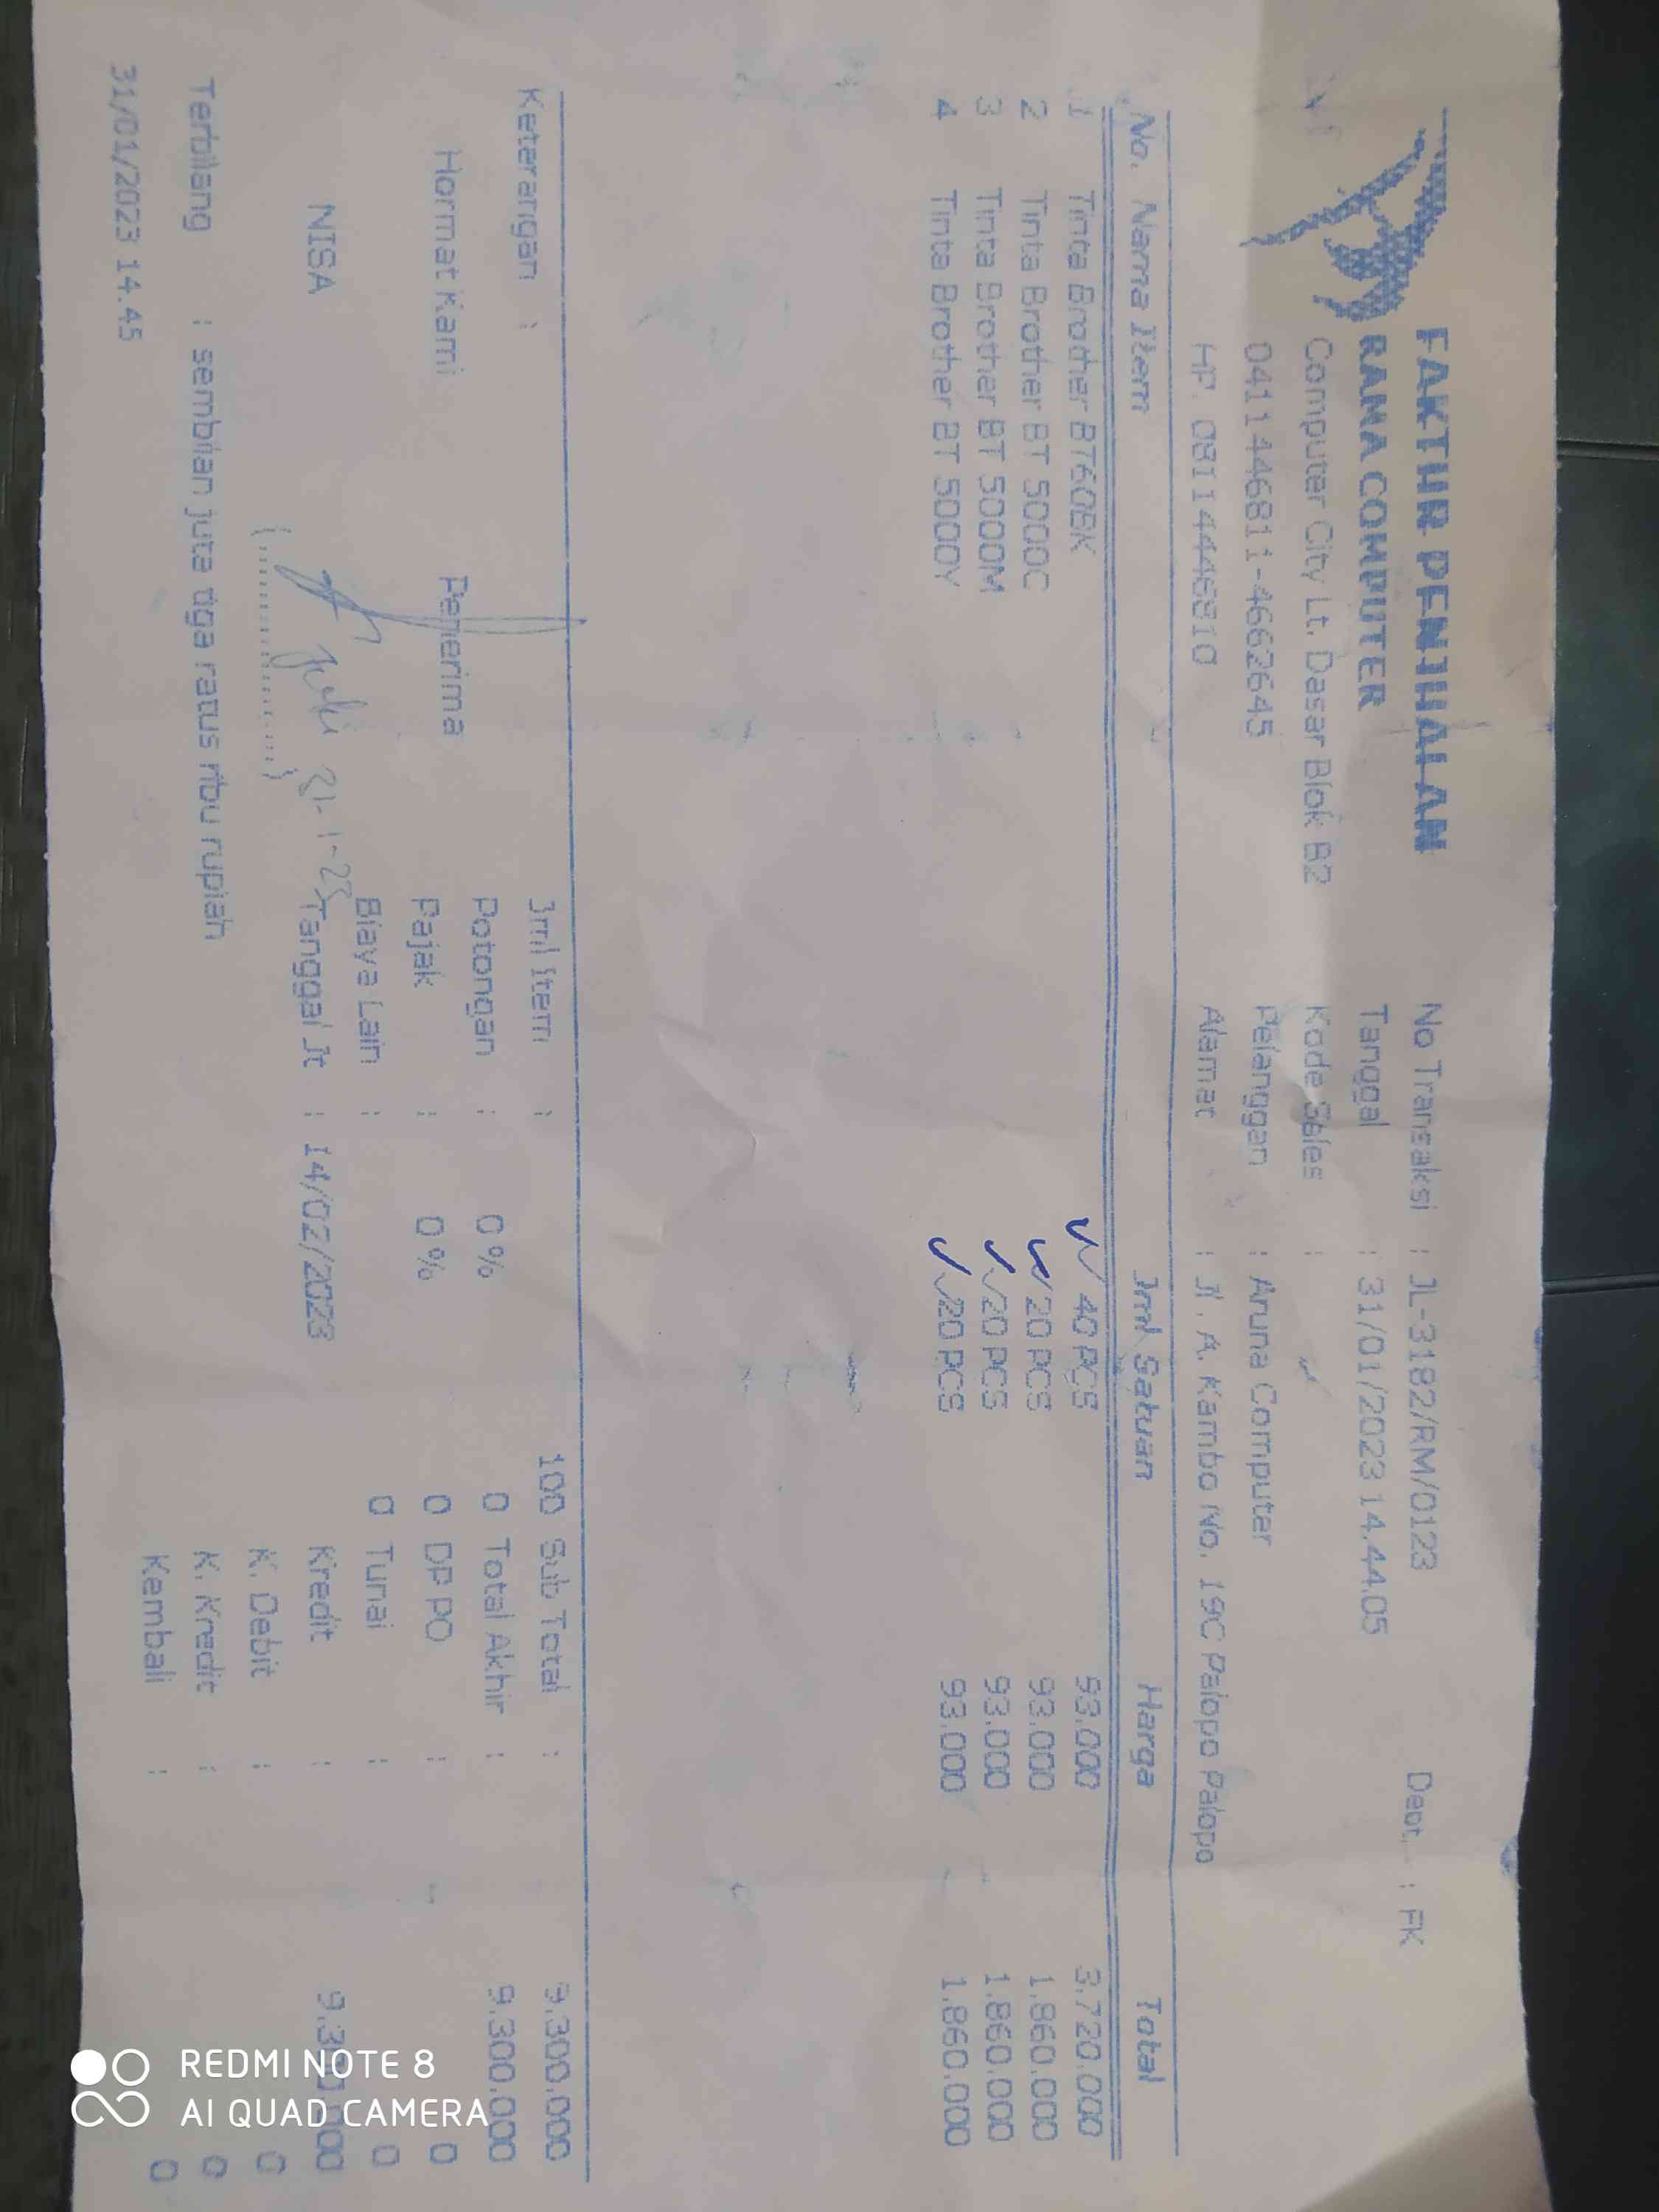 FAKTUR PENJUALAN
RAMA COMPUTER
Computer City Lt. Dasar Blok B2
0411446811-4662645
HP. 0811446810
No Transaksi : JL-3182/RM/0123
Dept. : FK
Tanggal : 31/01/2023 14.44.05
Kode Sales :
Pelanggan : Aruna Computer
Alamat : Jl. A. Kambo No. 19C Palopo Palopo
No. Nama Item Jml Satuan Harga Total
1 Tinta Brother BT60BK 40 PCS 93.000 3.720.000
2 Tinta Brother BT 5000C 20 PCS 93.000 1.860.000
3 Tinta Brother BT 5000M 20 PCS 93.000 1.860.000
4 Tinta Brother BT 5000Y 20 PCS 93.000 1.860.000
Keterangan :
Hormat Kami Penerima
NISA
31-1-23
(...............)
Jml Item : 100
Potongan : 0% 0
Pajak : 0% 0
Biaya Lain : 0
Tanggal Jt : 14/02/2023
Sub Total : 9.300.000
Total Akhir : 9.300.000
DP PO : 0
Tunai : 0
Kredit : 9.300.000
K. Debit : 0
K. Kredit : 0
Kembali : 0
Terbilang : sembilan juta tiga ratus ribu rupiah
31/01/2023 14.45
REDMI NOTE 8
AI QUAD CAMERA